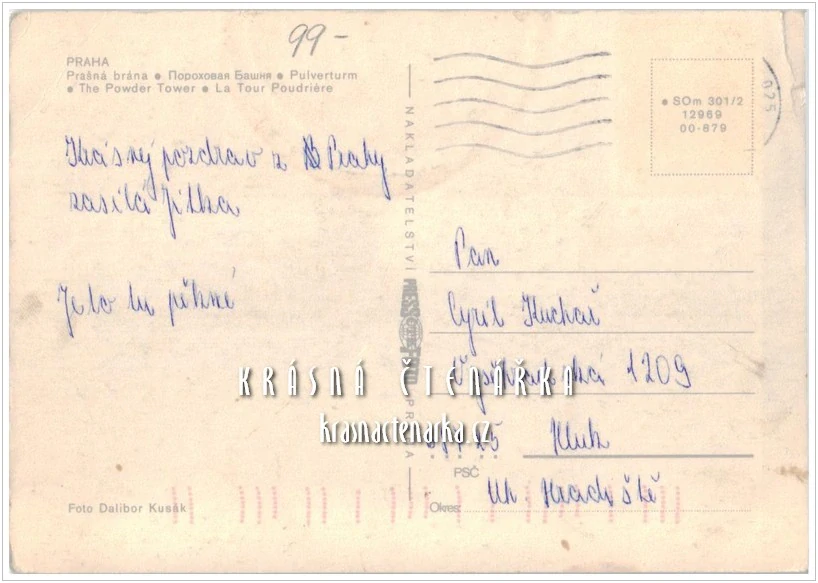 99-
PRAHA
Prašná brána ● Пороховая Башня ● Pulverturm
● The Powder Tower ● La Tour Poudrière
● SOm 301/2
12969
00-879
625
Krásný pozdrav z Prahy
zasílá Jitka
Je to tu pěkné
NAKLADATELSTVÍ
PRAHA
Pan
Cyril Kuchař
1209
Kluk
PSČ
Uh. Hradiště
Okres
KRÁSNÁ ČTENÁŘKA
krasnactenarka.cz
Foto Dalibor Kusák